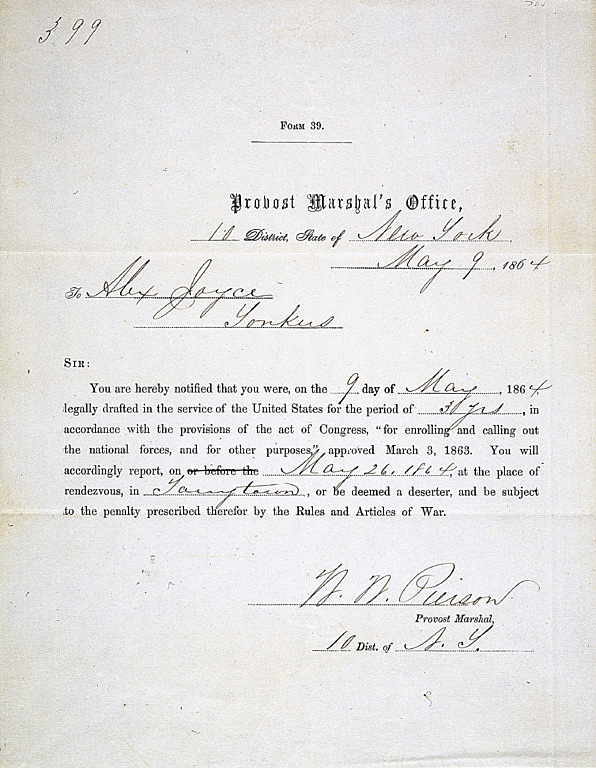 399
FORM 39.
Provost Marshal's Office,
10 District, State of New York
May 9, 1864
To Alex Joyce
Yonkers
SIR:
You are hereby notified that you were, on the 9 day of May, 1864,
legally drafted in the service of the United States for the period of 3 yrs, in
accordance with the provisions of the act of Congress, "for enrolling and calling out
the national forces, and for other purposes," approved March 3, 1863. You will
accordingly report, on or before the May 26, 1864, at the place of
rendezvous, in Tarrytown, or be deemed a deserter, and be subject
to the penalty prescribed therefor by the Rules and Articles of War.
W. W. Pierson
Provost Marshal,
10 Dist. of N. Y.